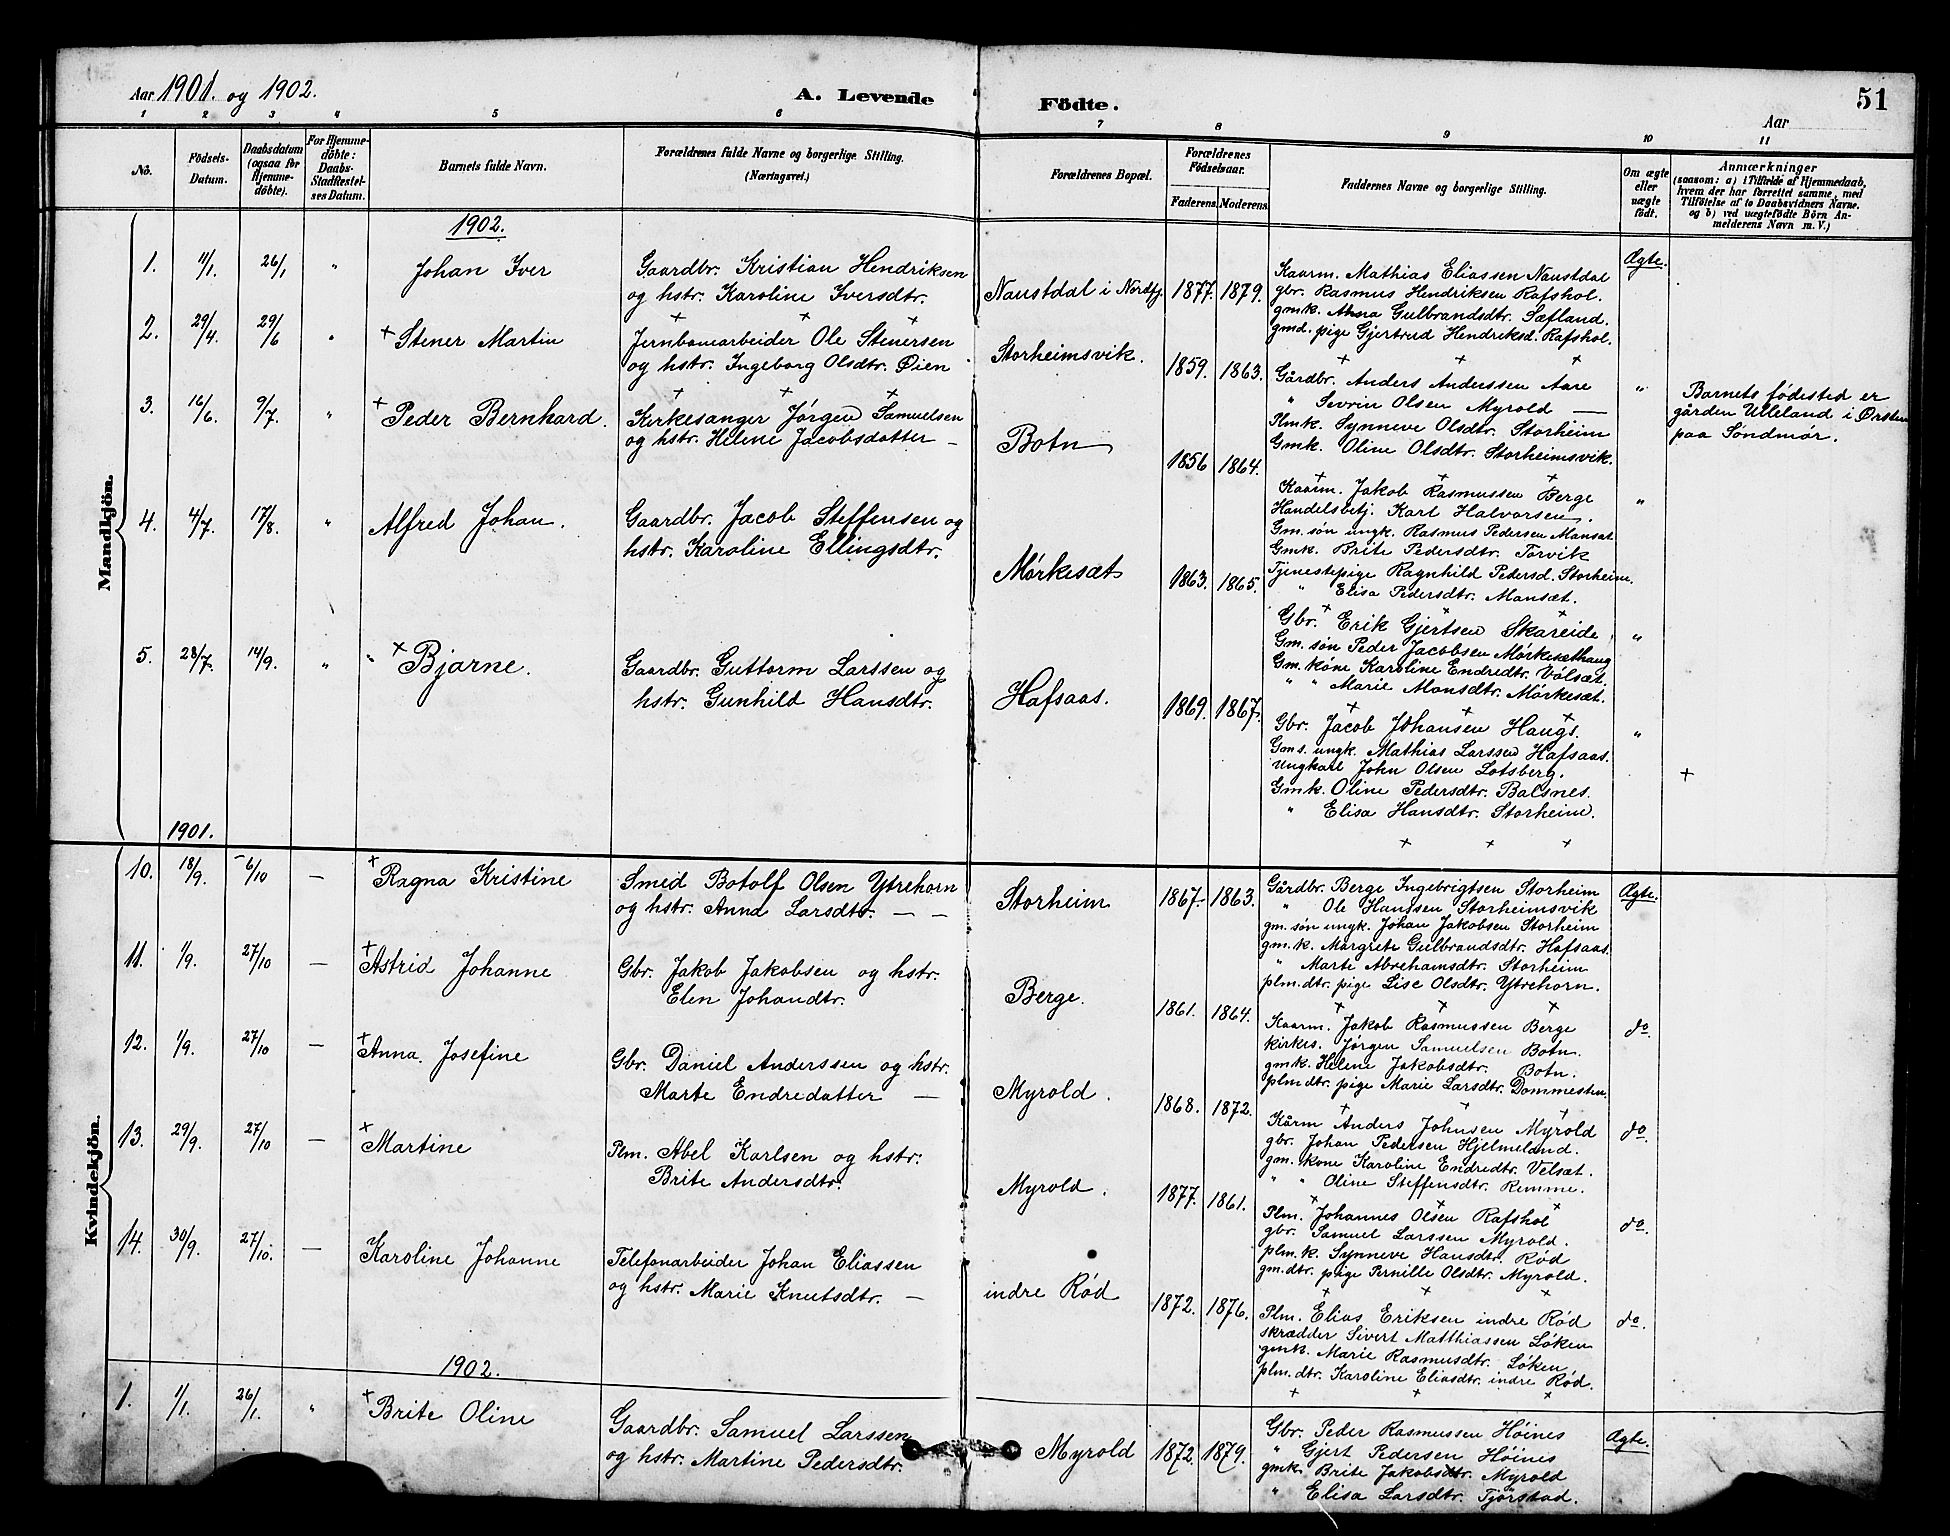 Aar 1901. og 1902.
A. Levende Födte.
51
Aar
1 2 3 4 5 6 7 8 9 10 11
No.
Födsels-Datum.
Daabsdatum (ogsaa for Hjemmedöbte).
For Hjemmedöbte: Daabs-Stadfestelses Datum.
Barnets fulde Navn.
Forældrenes fulde Navne og borgerlige Stilling. (Næringsvei.)
Forældrenes Bopæl.
Forældrenes Födselsaar.
Faderens. Moderens.
Faddernes Navne og borgerlige Stilling.
Om ægte eller uægte födt.
Anmærkninger
(saasom: a) i Tilfælde af Hjemmedaab, hvem der har forrettet samme, med Tilföielse af to Daabsvidners Navne, og b) ved uægtefödte Börn Anmelderens Navn m. V.)
Mandkjön.
1902.
1. 11/1. 26/1 " Johan Iver
Gaardbr. Kristian Hendriksen
og hstr. Karoline Iversdtr.
Naustdal i Nordfj. 1877. 1879.
Kaarm. Mathias Eliassen Naustdal
gbr. Rasmus Hendriksen Rafshol.
gmk. Anna Gulbrandsdtr. Sæfland.
gmd. pige Gjertrud Hendriksd. Rafshol.
Ægte.
2. 29/4. 29/6 " + Stener Martin
Jernbanearbeider Ole Stenersen
og hstr. Ingeborg Olsdtr. Øien
Storheimsvik. 1859. 1863.
Gårdbr. Anders Anderssen Aare
" Sevrin Olsen Myrold —
Plmk. Synneve Olsdtr. Storheim
Gmk. Oline Olsdtr. Storheimsvik.
"
Barnets födested er
gården Ulleland i Ørsten
paa Söndmör.
3. 16/6. 9/7. " + Peder Bernhard.
Kirkesanger Jörgen Samuelsen
og hstr. Helene Jacobsdatter —
Botn 1856 1864.
Kaarm. Jakob Rasmussen Berge
Handelsbetj. Karl Halvorsen.
Gm. søn ungk. Rasmus Pedersen Mansæt
Gmk. Brite Pedersdtr. Torvik
Tjenestepige Ragnhild Pedersd. Storheim.
" Elisa Pedersdtr. Mansæt.
"
4. 4/7. 17/8. " Alfred Johan.
Gaardbr. Jacob Steffensen og
hstr. Karoline Ellingsdtr.
Mørkesæt 1863. 1865.
Gbr. Erik Gjertsen Skareide.
Gm. søn Peder Jacobsen Mørkesæthaug
Gm. kone Karoline Endredtr. Völsæt.
" " Marie Monsdtr. Mørkesæt.
"
5. 28/7. 14/9. " " + Bjarne.
Gaardbr. Guttorm Larssen og
hstr. Gunhild Hansdtr.
Hafsaas. 1869. 1867.
Gbr. Jacob Johansen Haugs.
Gms. ungk. Mathias Larssen Hafsaas.
Ungkarl John Olsen Lotsberg.
Gmk. Oline Pedersdtr. Balsnes.
" Elisa Hansdtr. Storheim.
"
+
Kvindekjön.
1901.
10. 18/9. 6/10 — + Ragna Kristine
Smed Botolf Olsen Ytrehorn
og hstr. Anna Larsdtr. — —
Storheim 1867. 1863.
Gårdbr. Berge Ingebrigtsen Storheim
" Ole Hanssen Storheimsvik
gm. søn ungk. Johan Jakobsen Storheim
gm. k. Margrete Gulbrandsdtr. Hafsaas.
" Marte Abrehamsdtr. Storheim
plm. dtr. pige Lise Olsdtr. Ytrehorn.
Ægte.
11. 1/9. 27/10 — + Astrid Johanne
Gbr. Jakob Jakobsen og hstr.
Elen Johandtr.
Berge. 1861. 1864.
Kaarm. Jakob Rasmussen Berge
kirkes. Jørgen Samuelsen Botn.
gmk. Helene Jakobsdtr. Botn.
plm dtr. pige Marie Larsdtr. Dommesten.
do
12. 1/9. 27/10 — + Anna Josefine
Gbr. Daniel Anderssen og hstr.
Marte Endredatter —
Myrold. 1868. 1872.
Kårm Anders Johnsen Myrold
gbr. Johan Pedersen Hjelmeland.
gm. kone Karoline Endredtr. Velsæt.
" " Oline Steffensdtr. Remme.
do.
13. 29/9. 27/10 — + Martine
Plm. Abel Karlsen og hstr.
Brite Andersdtr.
Myrold. 1877. 1861.
Plm. Johannes Olsen Rafshol
gbr. Samuel Larssen Myrold.
plm. k. Synneve Hansdtr. Rød
gm. dtr. pige Pernille Olsdtr. Myrold.
do.
14. 30/9. 27/10. — Karoline Johanne
Telefonarbeider Johan Eliassen
og hstr. Marie Knutsdtr. —
indre Rød 1872. 1876.
Plm. Elias Eriksen indre Rød
skrædder Sivert Matthiassen Løken
gmk. Marie Rasmusdtr. Løken
plm. dtr. Karoline Eliasdtr. indre Rød.
do.
1902.
1. 1/1. 26/1. " + Brite Oline
Gaardbr. Samuel Larssen
og hstr. Martine Pedersdtr.
Myrold 1872. 1879.
Gbr. Peder Rasmussen Høines
" Gjert Pedersen Høines
gmk. Brite Jakobsdtr. Myrold
" Elisa Larsdtr. Tjørstad.
Ægte.